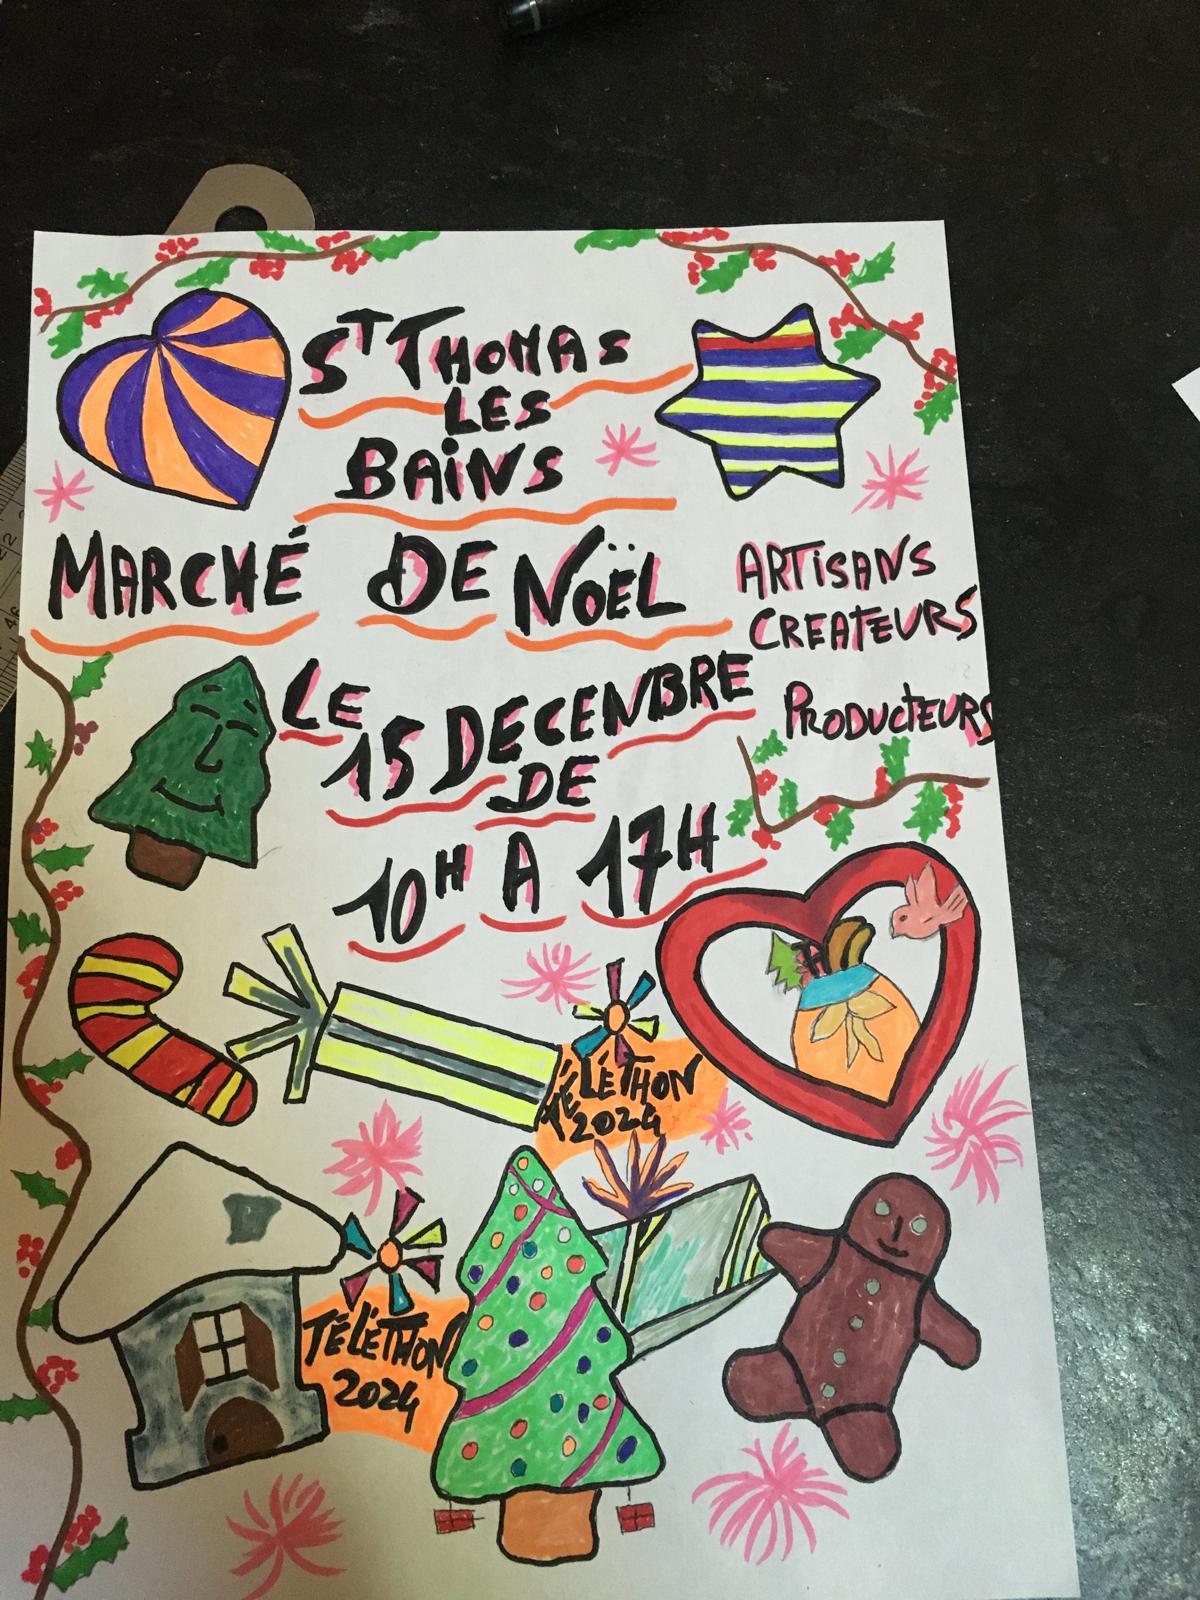 ST THOMAS
LES
BAiNS
MARCHÉ DE NOËL
ARTiSANS
CREATEURS
PRODUCTEURS
LE
15 DECENBRE
DE
10H A 17H
TÉLÉTHON
2024
TÉLÉTHON
2024